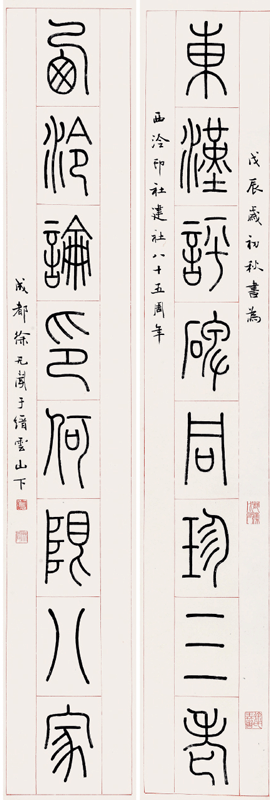 戊辰歲初秋書為
東漢評碑同珍三老
西泠印社建社八十五周年
西泠論印何限八家
成都徐无聞于縉雲山下